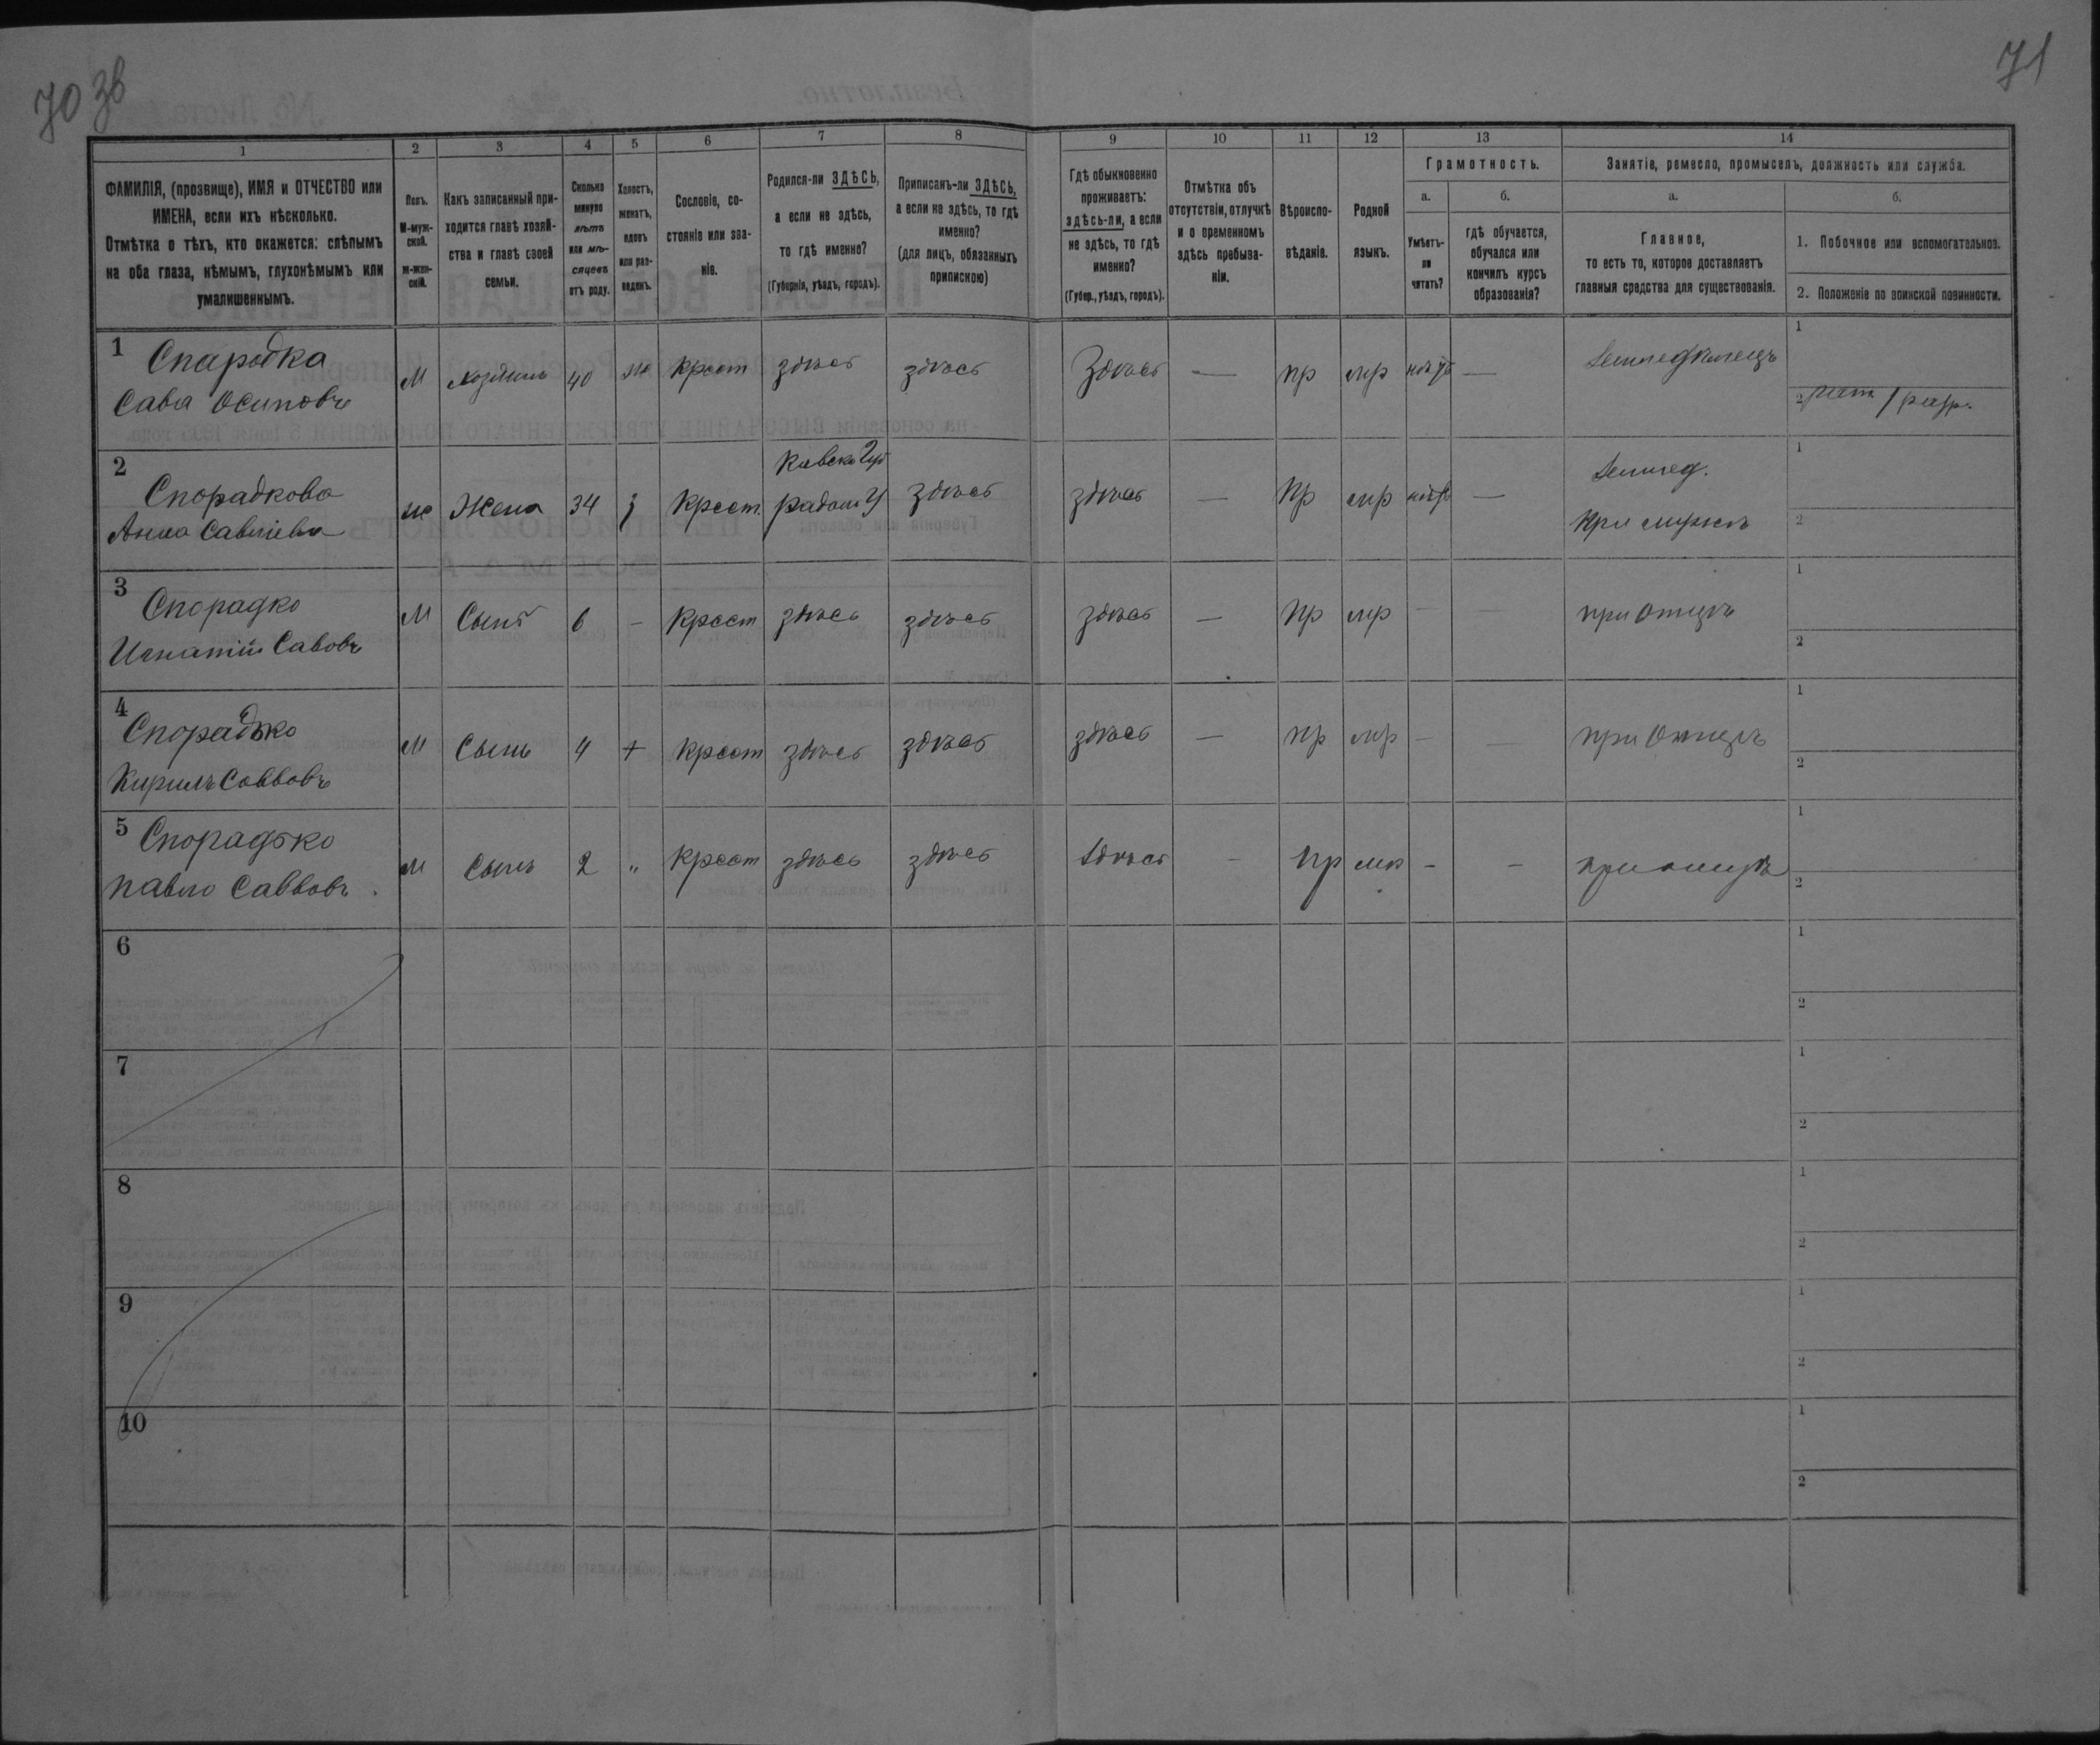 70 зв
71
1 2 3 4 5 6 7 8 9 10 11 12 13 14
ФАМИЛІЯ, (прозвище), ИМЯ и ОТЧЕСТВО или
ИМЕНА, если ихъ нѣсколько.
Отмѣтка о тѣхъ, кто окажется: слѣпымъ
на оба глаза, нѣмымъ, глухонѣмымъ или
умалишеннымъ.
Полъ.
М-муж-
ской.
ж-жен-
скій.
Какъ записанный при-
ходится главѣ хозяй-
ства и главѣ своей
семьи.
Сколько
минуло
лѣтъ
или мѣ-
сяцевъ
отъ роду.
Холостъ,
женатъ,
вдовъ
или раз-
веденъ.
Сословіе, со-
стояніе или зва-
ніе.
Родился-ли ЗДѢСЬ,
а если не здѣсь,
то гдѣ именно?
(Губернія, уѣздъ, городъ).
Приписанъ-ли ЗДѢСЬ,
а если не здѣсь, то гдѣ
именно?
(для лицъ, обязанныхъ
припискою)
Гдѣ обыкновенно
проживаетъ:
здѣсь-ли, а если
не здѣсь, то гдѣ
именно?
(Губер., уѣздъ, городъ).
Отмѣтка объ
отсутствіи, отлучкѣ
и о временномъ
здѣсь пребыва-
ніи.
Вѣроиспо-
вѣданіе.
Родной
языкъ.
Грамотность.
а.
Умѣетъ-
ли
читать?
б.
гдѣ обучается,
обучался или
кончилъ курсъ
образованія?
Занятіе, ремесло, промыселъ, должность или служба.
а.
Главное,
то есть то, которое доставляетъ
главныя средства для существованія.
б.
1. Побочное или вспомогательное.
2. Положеніе по воинской повинности.
1 Спарадка
Сава Осиповъ
М хозяинъ 40 ж крест здѣсь здѣсь Здѣсь — пр мр нѣтъ —
1
2
2 Спорадкова
Анна Савелиева
ж Жена 34 з Крест. здѣсь здѣсь — Пр мр нѣтъ —
Киевск Губ
Радом У
при мужѣ
1
2
3 Спорадко
Игнатій Савовъ
М Сынъ 6 – Крест здѣсь здѣсь здѣсь — Пр мр — — при отцѣ
1
2
4 Спорадько
Кирилъ Саввовъ
М Сынъ 4 + Крест здѣсь здѣсь здѣсь — пр мр – — при Отцѣ
1
2
5 Спорадько
Павло Саввовъ.
М Сынъ 2 „ Крест здѣсь здѣсь здѣсь – Пр мр – – при отцѣ
1
2
6
1
2
7
1
2
8
1
2
9
1
2
10
1
2